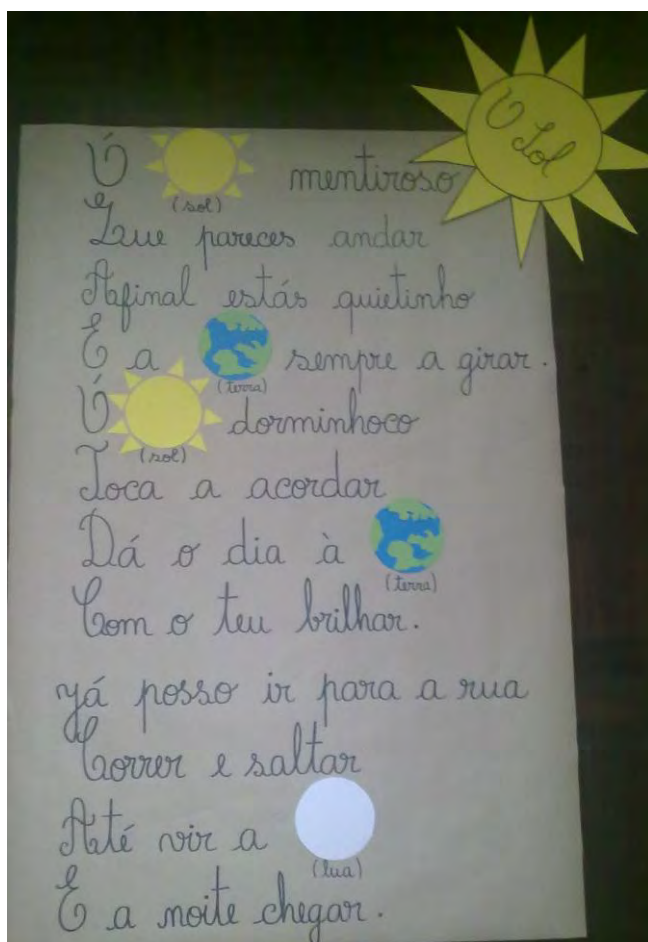 O Sol
Ó mentiroso
(sol)
Que pareces andar
Afinal estás quietinho
E a sempre a girar.
(terra)
Ó dorminhoco
(sol)
Toca a acordar
Dá o dia à
(terra)
Com o teu brilhar.
Já posso ir para a rua
Correr e saltar
Até vir a
(lua)
E a noite chegar.